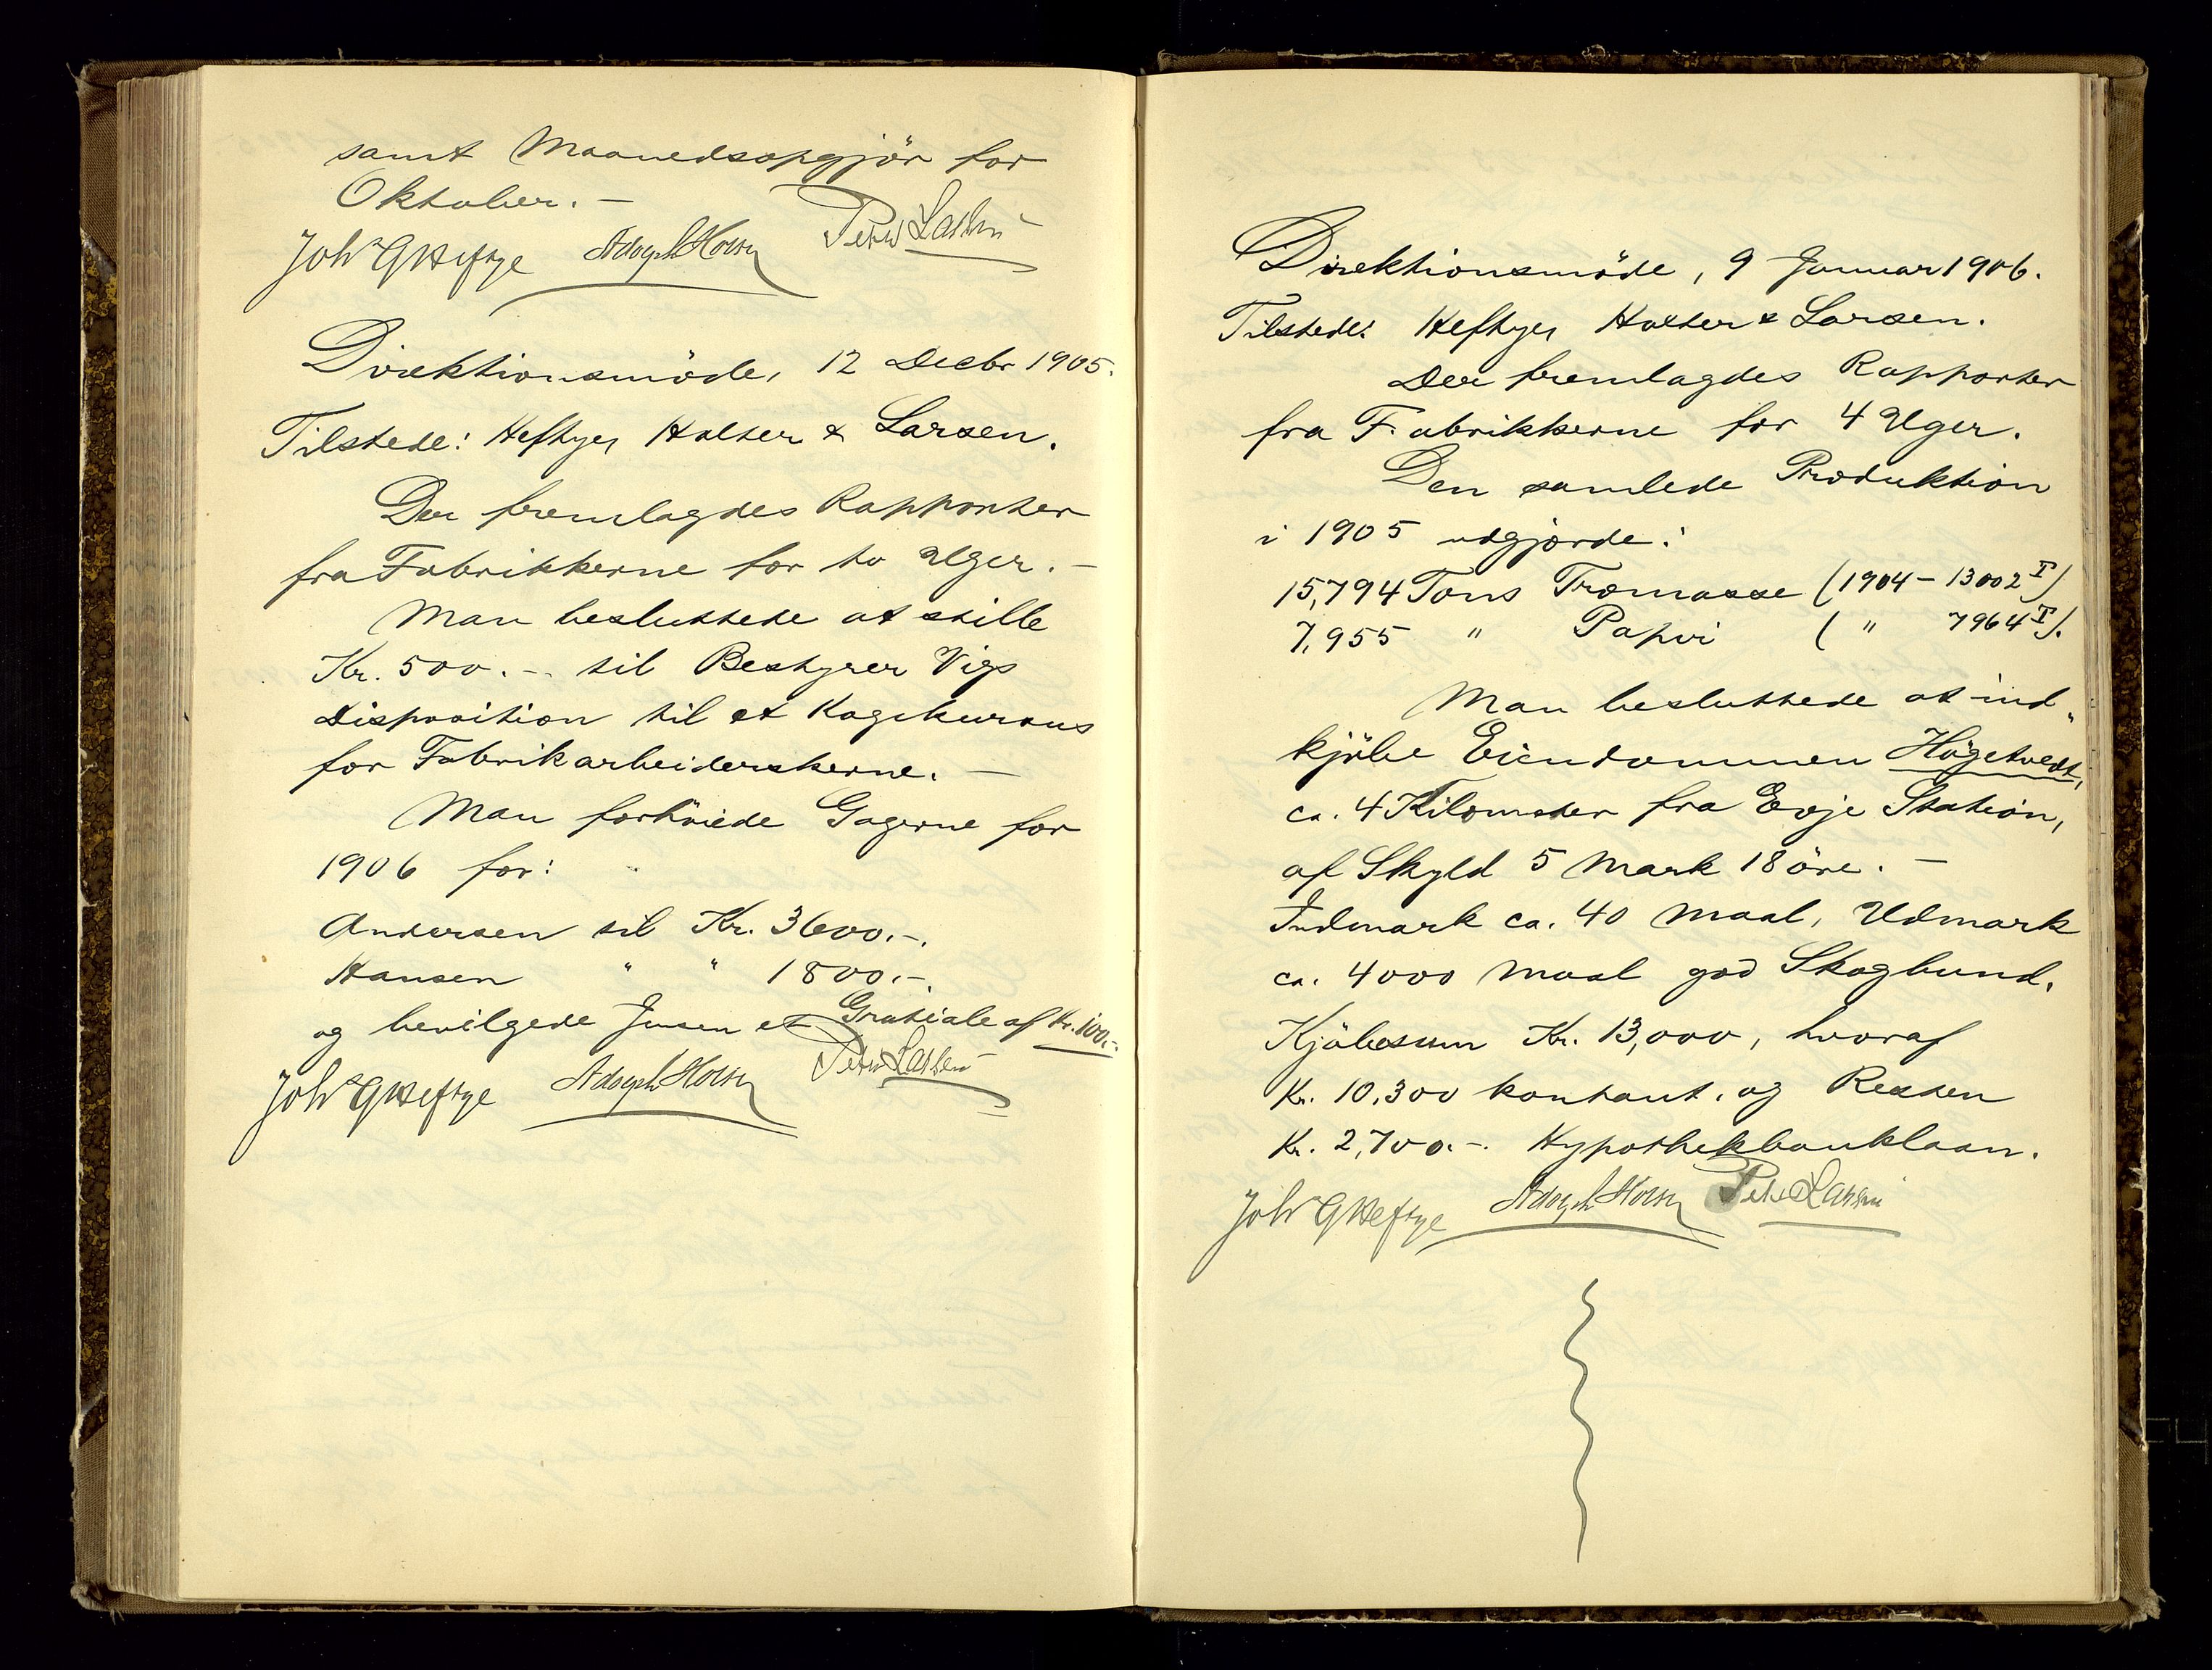 samt Maanedsopgjör for
Oktober. —
Joh<sup>s</sup> G Heftye Adolph Holter Petter Larsen
Direktionsmöde, 12 Decbr 1905.
Tilstede: Heftye, Holter & Larsen.
Der fremlagdes Rapporter
fra Fabrikkerne for to Uger. —
Man besluttede at stille
Kr. 500. - til Bestyrer Vigs
Disposition til et Kogekursus
for Fabrikarbeiderskerne. —
Man forhöiede Gagerne for
1906 for:
Andersen til Kr. 3600.-.
Hansen " " 1800.-.
og bevilgede Jensen et Gratiale af Kr. 100.-.
Joh<sup>s</sup> G Heftye Adolph Holter Petter Larsen
Direktionsmöde, 9 Januar 1906.
Tilstede: Heftye, Holter & Larsen.
Der fremlagdes Rapporter
fra Fabrikkerne for 4 Uger.
Den samlede Produktion
i 1905 udgjorde:
15,794 Tons Træmasse (1904 - 13002 T)
7,955 " Papir ( " 7964 T).
Man besluttede at ind„
kjöbe Eiendommen Högetvedt,
ca. 4 Kilometer fra Evje Station,
af Skyld 5 Mark 18 öre. —
Indmark ca. 40 Maal, Udmark
ca. 4000 Maal god Skogbund.
Kjöbesum Kr. 13,000, hvoraf
Kr. 10,300 kontant, og Resten
Kr. 2,700.-. Hypothekbanklaan.
Joh<sup>s</sup> G Heftye Adolph Holter Petter Larsen